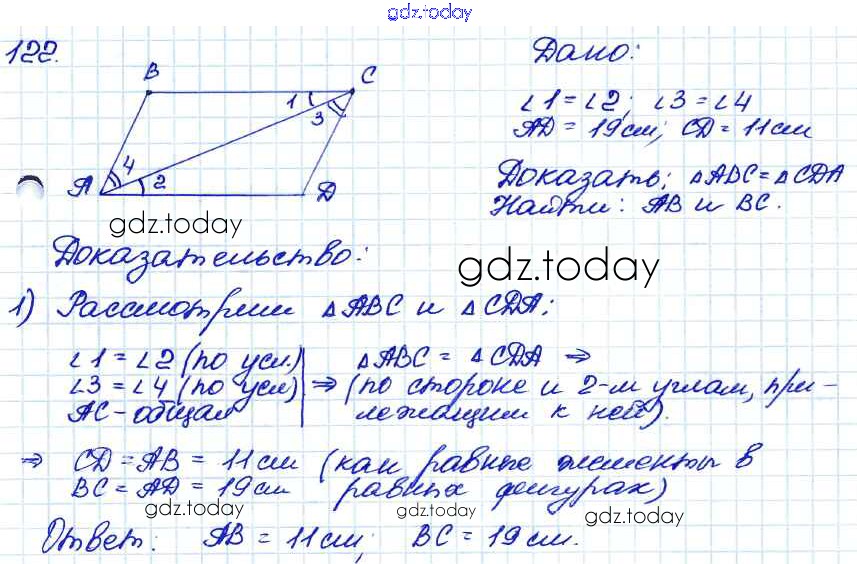 gdz.today
122.
B
C
1
3
4
2
A
D
Дано:
∠1 = ∠2; ∠3 = ∠4
AD = 19 см; CD = 11 см
Доказать: △ABC = △CDA
Найти: AB и BC.
gdz.today
Доказательство:
gdz.today
1) Рассмотрим △ABC и △CDA:
∠1 = ∠2 (по усл.) | △ABC = △CDA ⇒
∠3 = ∠4 (по усл) | ⇒ (по стороне и 2-м углам, при-
AC - общая | лежащим к ней).
⇒ CD = AB = 11 см (как равные элементы в
BC = AD = 19 см равных фигурах)
gdz.today gdz.today gdz.today
Ответ: AB = 11 см; BC = 19 см.